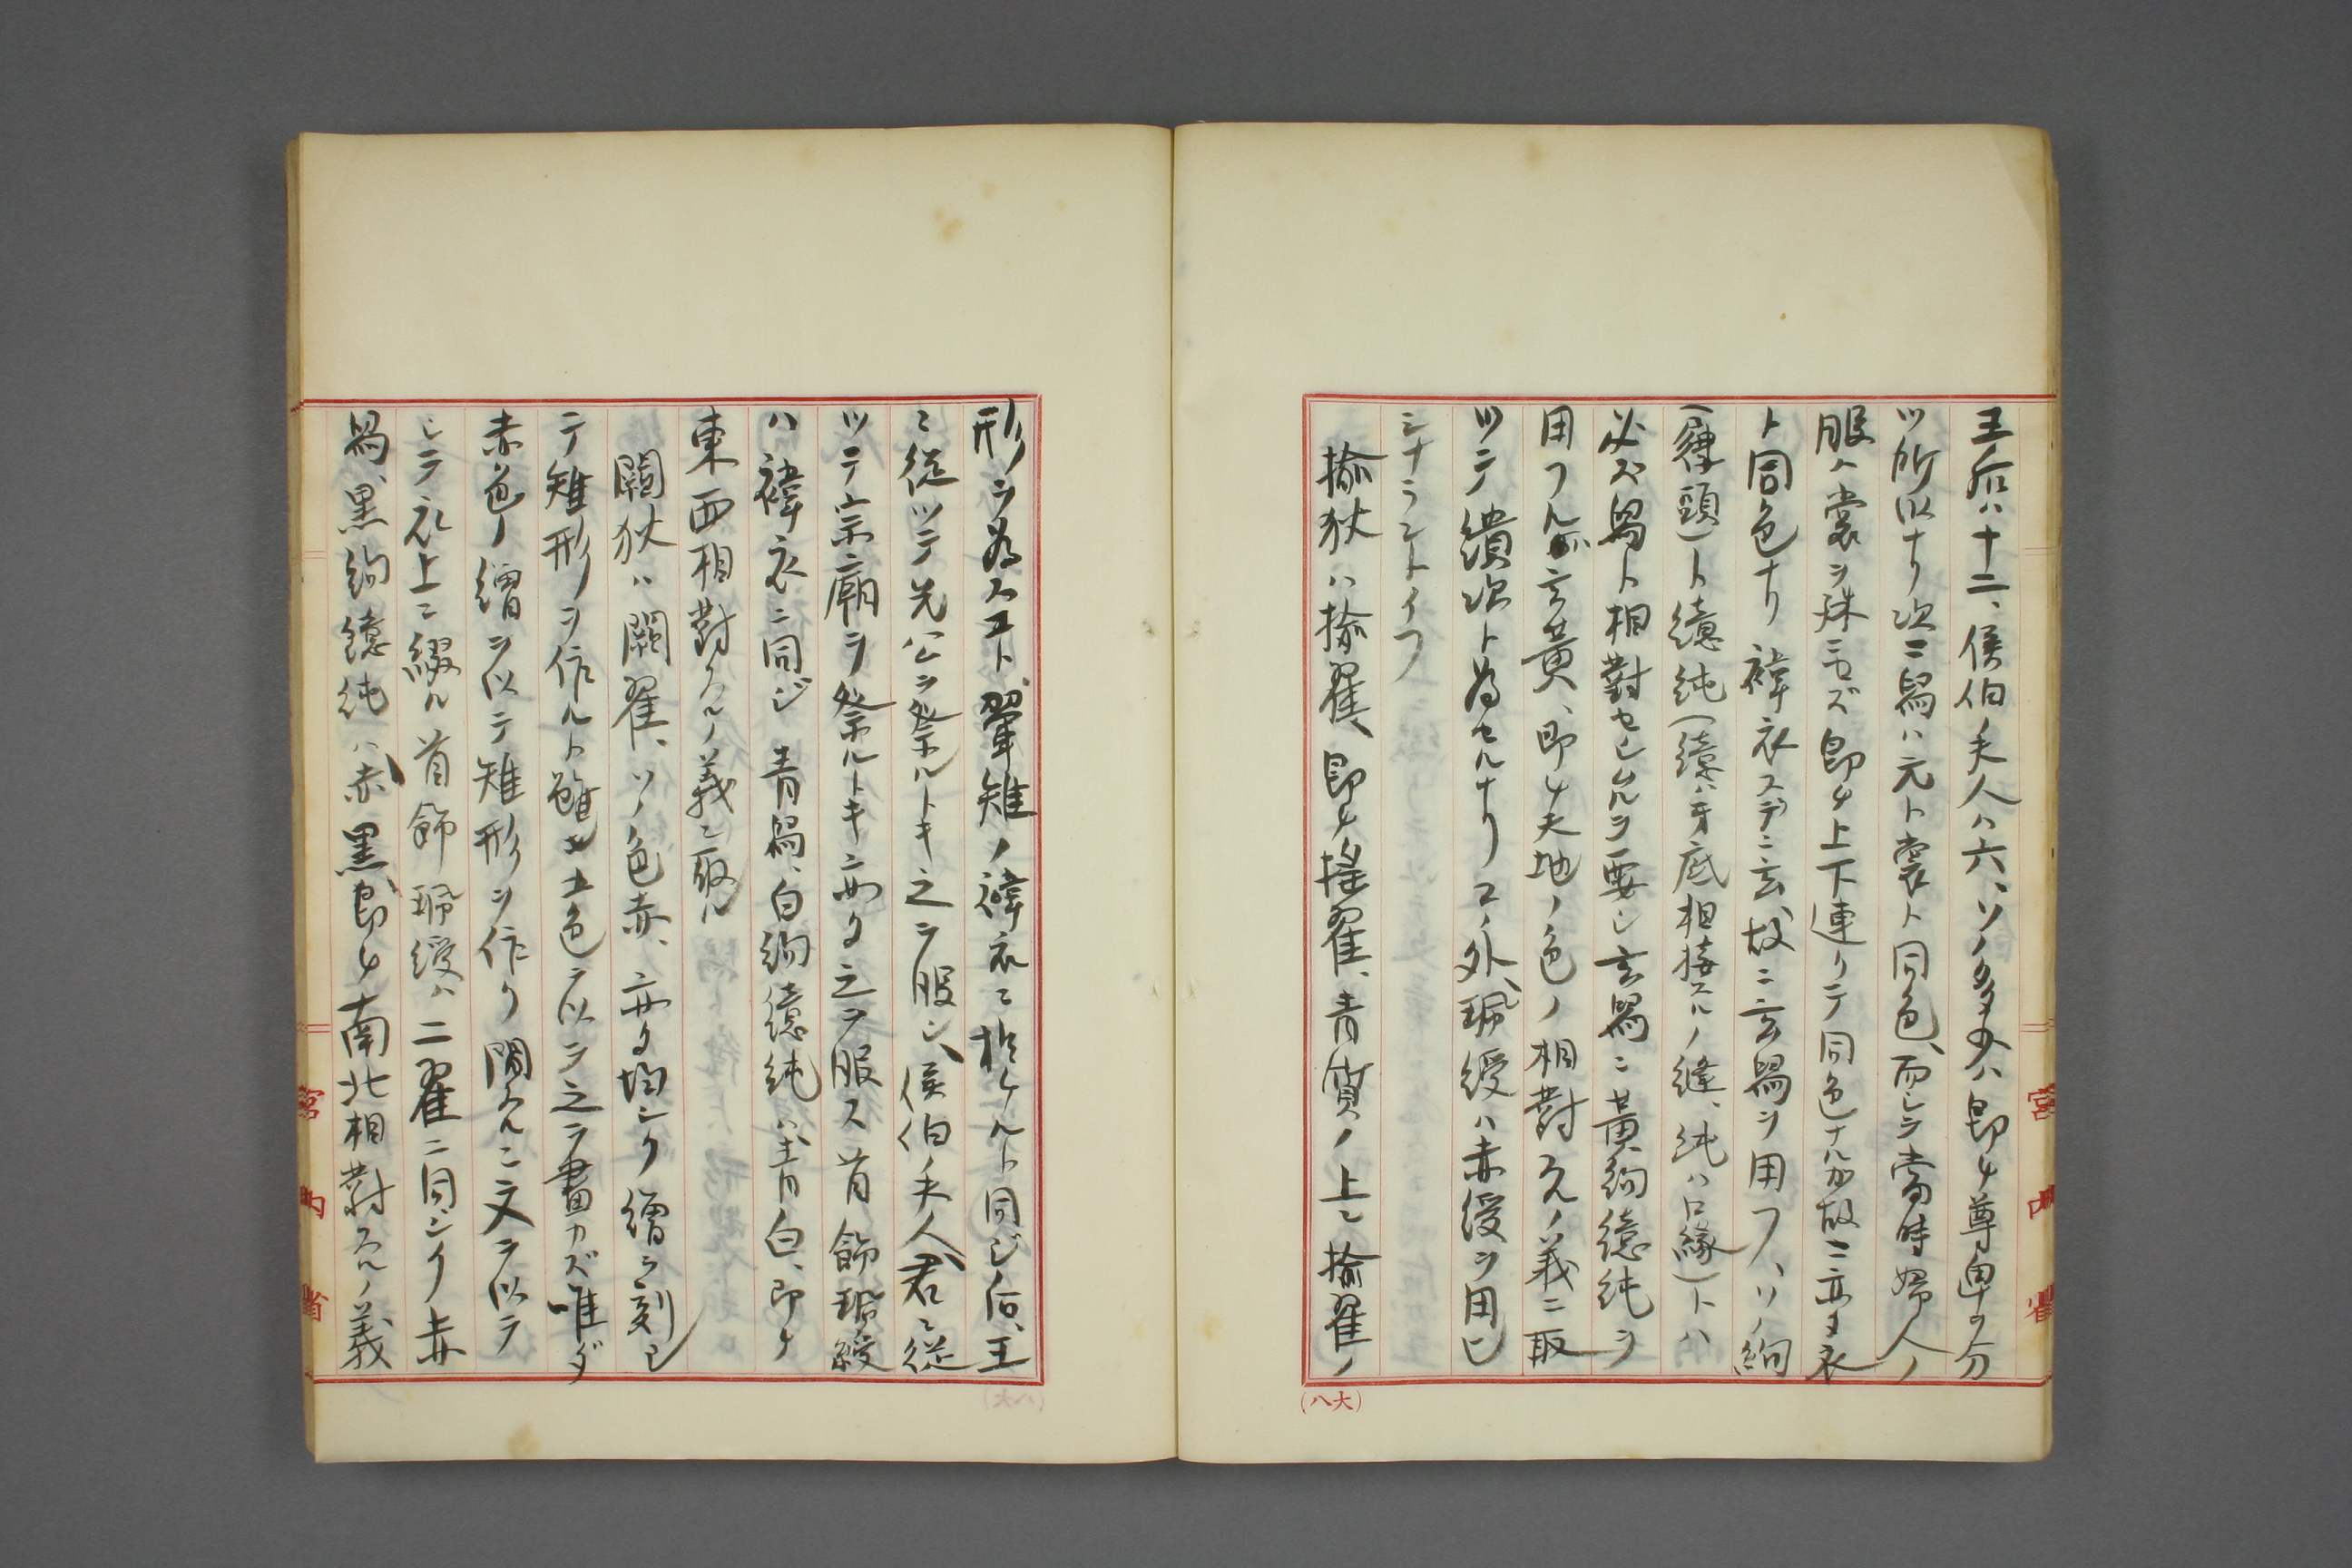 王后ハ十二、侯伯ノ夫人ハ六、ソノ多少ハ即チ尊卑ヲ分
ツ所以ナリ次ニ舃ハ元ト裳ト同色、而シテ當時婦人ノ
服ハ裳ヲ殊ニセズ即チ上下連リテ同色ナルガ故ニ亦タ衣
ト同色ナリ 褘衣スデニ玄、故ニ玄舃ヲ用フ、ソノ絇
(舃頭)ト繶純(繶ハ牙底相接スルノ縫、純ハ口緣)トハ
必ズ舃ト相對セシムルヲ要シ玄舃ニ黃絇繶純ヲ
用フルガ玄黃、即チ天地ノ色ノ相對スルノ義ニ取
ツテ繢次ト爲セルナリ コノ外、珮綬ハ赤綬ヲ用ヒ
シナラントイフ
揄狄ハ揄翟、即チ搖翟、青質ノ上ニ揄翟ノ
形ヲ爲スコト、翬雉ノ褘衣ニ於ケルト同ジ 后、王
ニ從ツテ先公ヲ祭ルトキ之ヲ服シ、侯伯ノ夫人、君ニ從
ツテ宗廟ヲ祭ルトキニ亦タ之ヲ服ス 首飾珮綬
ハ褘衣ニ同ジ 青舃、白絇繶純ハ青白、即チ
東西相對スルノ義ニ取ル
闕狄ハ闕翟、ソノ色赤、亦タ均シク繒ヲ刻シ
テ雉形ヲ作ルト雖モ五色ヲ以テ之ヲ畫カズ唯ダ
赤色ノ繒ヲ以テ雉形ヲ作リ 間スルニ文ヲ以テ
シテ衣上ニ綴ル 首飾珮綬ハ二翟ニ同ジク赤
舃、黑絇繶純ハ赤黑、即チ南北相對スルノ義
宮內省
宮內省
(大八)